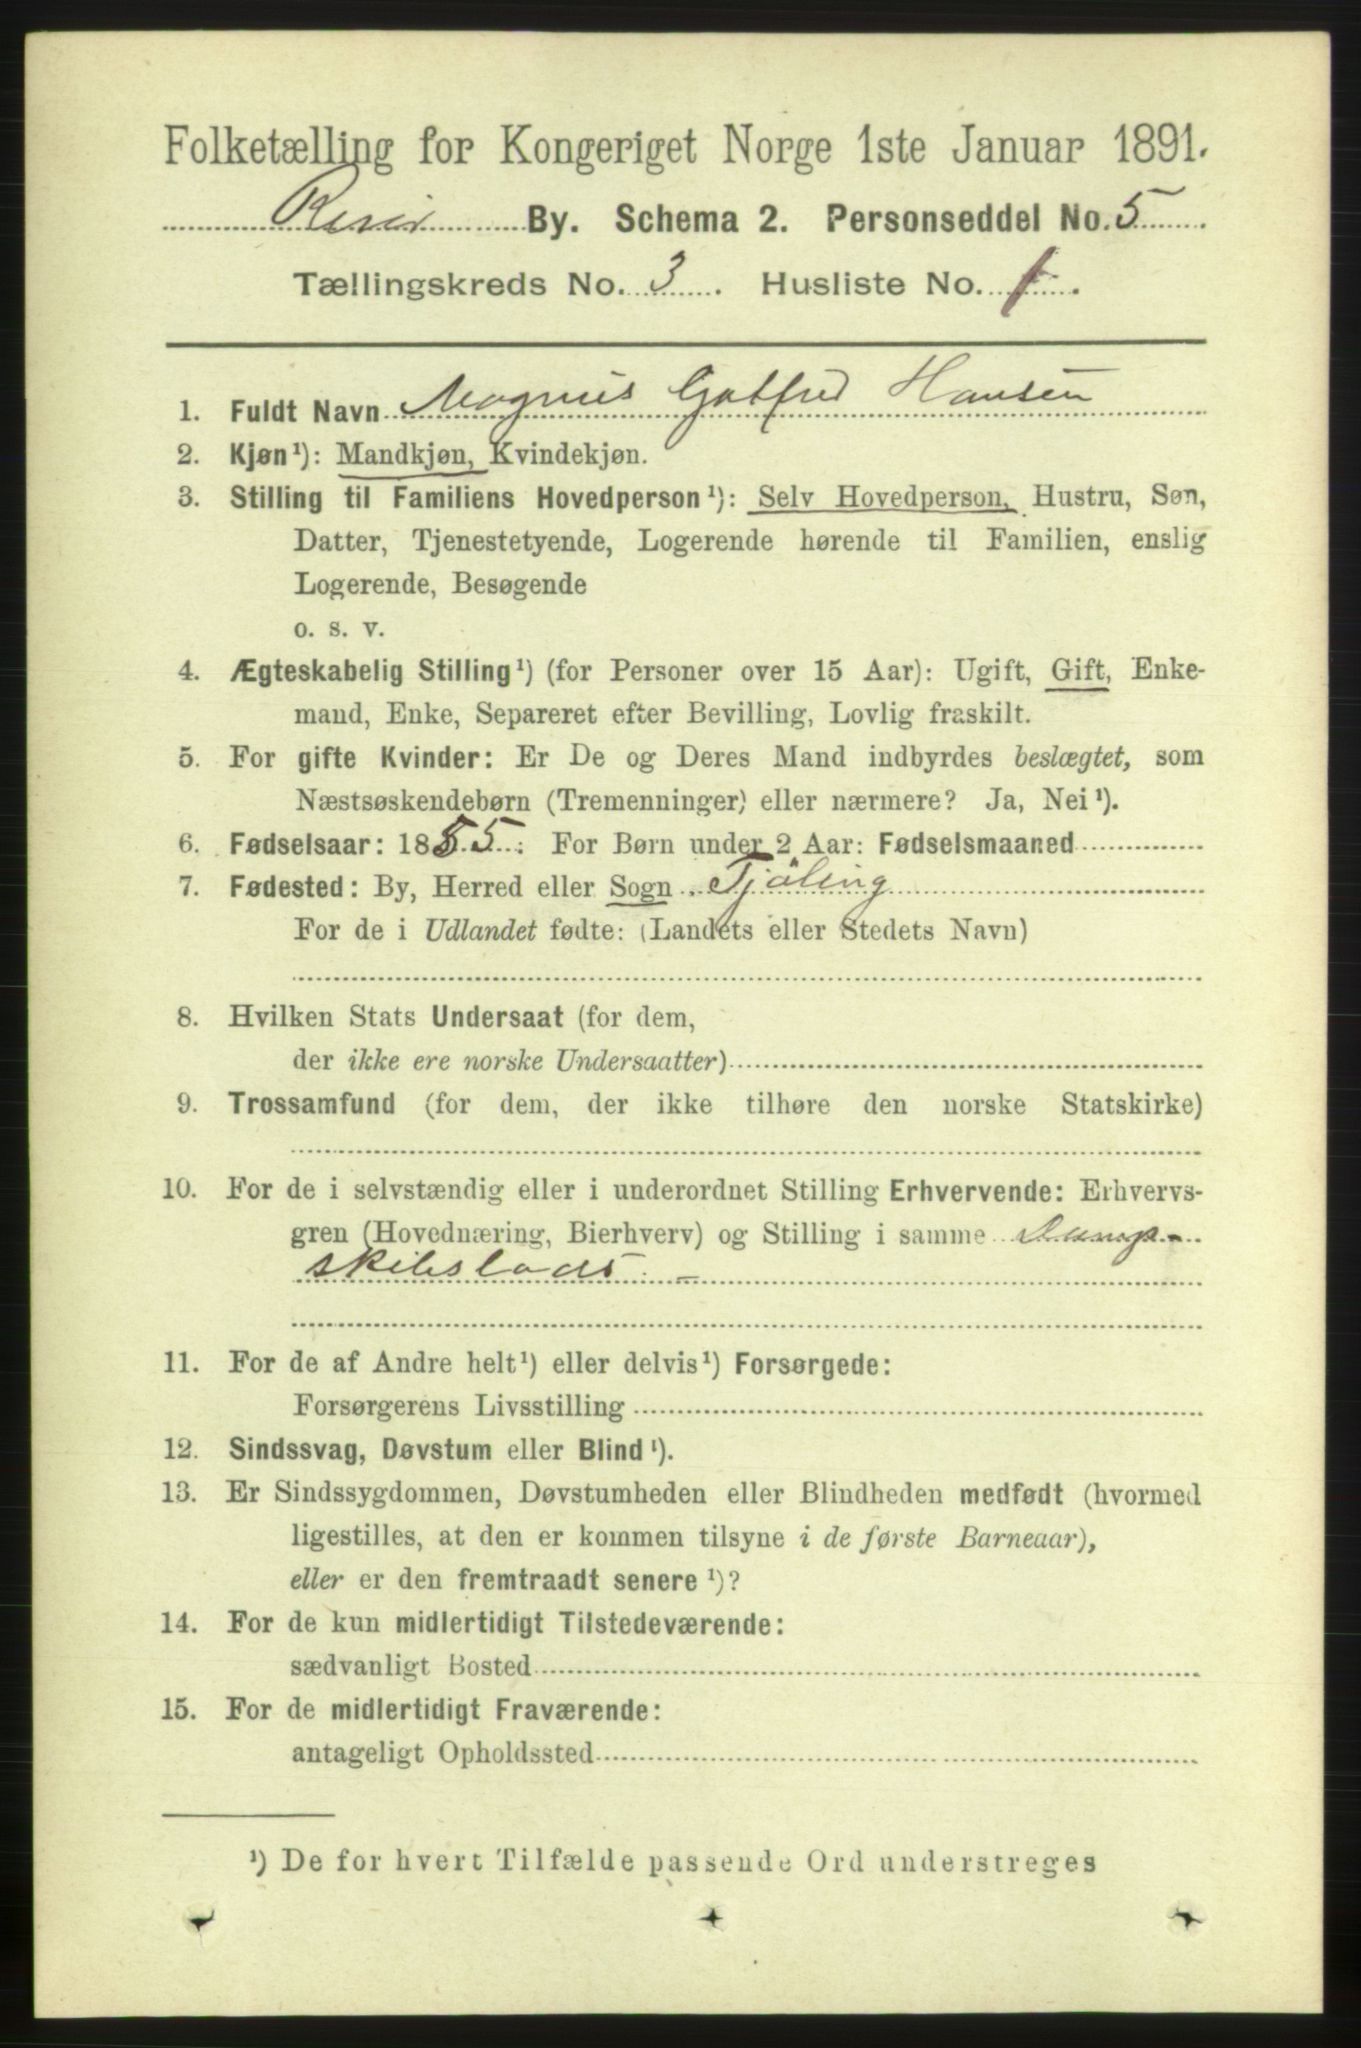 Folketælling for Kongeriget Norge 1ste Januar 1891.
Risør By. Schema 2. Personseddel No. 5
Tællingskreds No. 3. Husliste No. 1.
1. Fuldt Navn Magnus Gotfred Hansen
2. Kjøn¹): Mandkjøn, Kvindekjøn.
3. Stilling til Familiens Hovedperson¹): Selv Hovedperson, Hustru, Søn,
Datter, Tjenestetyende, Logerende hørende til Familien, enslig
Logerende, Besøgende
o. s. v.
4. Ægteskabelig Stilling¹) (for Personer over 15 Aar): Ugift, Gift, Enke-
mand, Enke, Separeret efter Bevilling, Lovlig fraskilt.
5. For gifte Kvinder: Er De og Deres Mand indbyrdes beslægtet, som
Næstsøskendebørn (Tremenninger) eller nærmere? Ja, Nei¹).
6. Fødselsaar: 1855. For Børn under 2 Aar: Fødselsmaaned
7. Fødested: By, Herred eller Sogn Tjöling
For de i Udlandet fødte: (Landets eller Stedets Navn)
8. Hvilken Stats Undersaat (for dem,
der ikke ere norske Undersaatter)
9. Trossamfund (for dem, der ikke tilhøre den norske Statskirke)
10. For de i selvstændig eller i underordnet Stilling Erhvervende: Erhvervs-
gren (Hovednæring, Bierhverv) og Stilling i samme Damp-
skibslods
11. For de af Andre helt¹) eller delvis¹) Forsørgede:
Forsørgerens Livsstilling
12. Sindssvag, Døvstum eller Blind¹).
13. Er Sindssygdommen, Døvstumheden eller Blindheden medfødt (hvormed
ligestilles, at den er kommen tilsyne i de første Barneaar),
eller er den fremtraadt senere¹)?
14. For de kun midlertidigt Tilstedeværende:
sædvanligt Bosted
15. For de midlertidigt Fraværende:
antageligt Opholdssted
¹) De for hvert Tilfælde passende Ord understreges